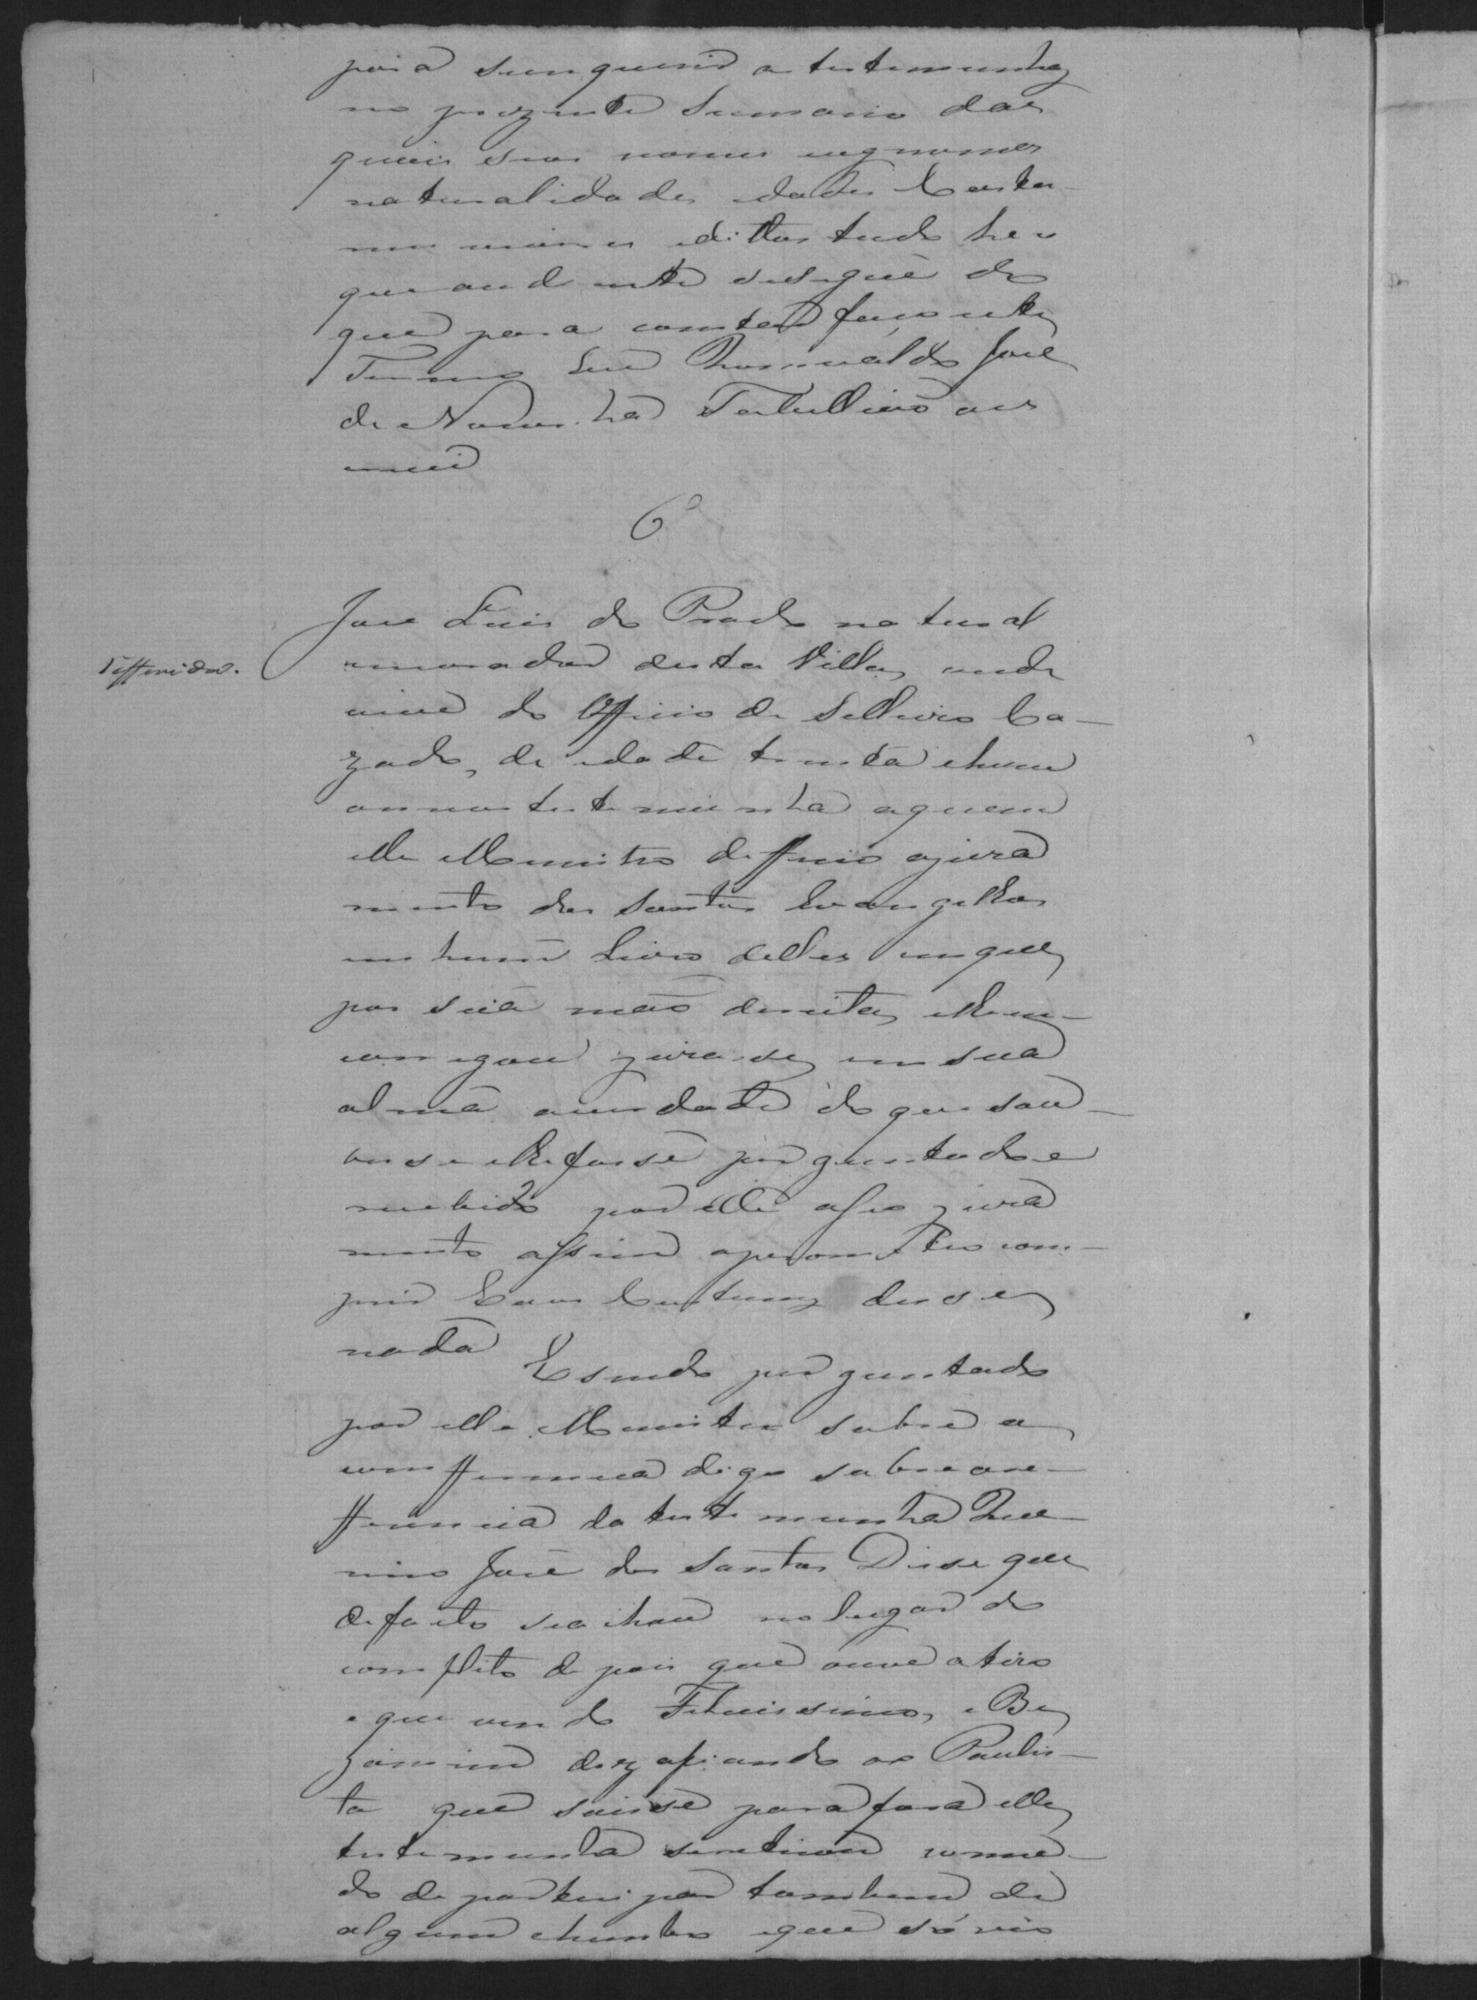 para serem queridas testemunhas
no prezente Sumario das
quais seus nomes cognomes
naturalidades idades Costu
mes e dittos tudo he o
que aodiente sesegue do
que para constar faço este
Termo Eu Romualdo José
de Noronha Tabelliaõ es
crevi
6ª
José Luis do Prado natural
Refferida.
emorador desta Villa, onde
vive do Officio de Selleiro Ca-
zado, de idade trinta ehum
annos testemunha aquem
elle Menistro defferio ojura
mento dos Santos Evangelhos
em hum Livro delles emque
por sua maõ direita, elhe en-
carregou jurase em sua
alma averdade do que sou-
besse elhe fosse perguntado e
recebido por elle o ditto jura
mento assim oprometteo com-
prir Eaos Custumes disse
nada
Esendo perguntado
por elle Menistro sobre a
comfferencia digo sobre are-
fferencia da testemunha Que-
rino José dos Santos Disse que
defacto seachou nolugar do
comflito depois que ouve otiro
eque vendo Felicissimo, e Be
jamim dezafiando ao Paulis-
ta que saisse para fora elle
testemunha seretirou comme-
do departecipar tambem de
algum chumbo eque só vio